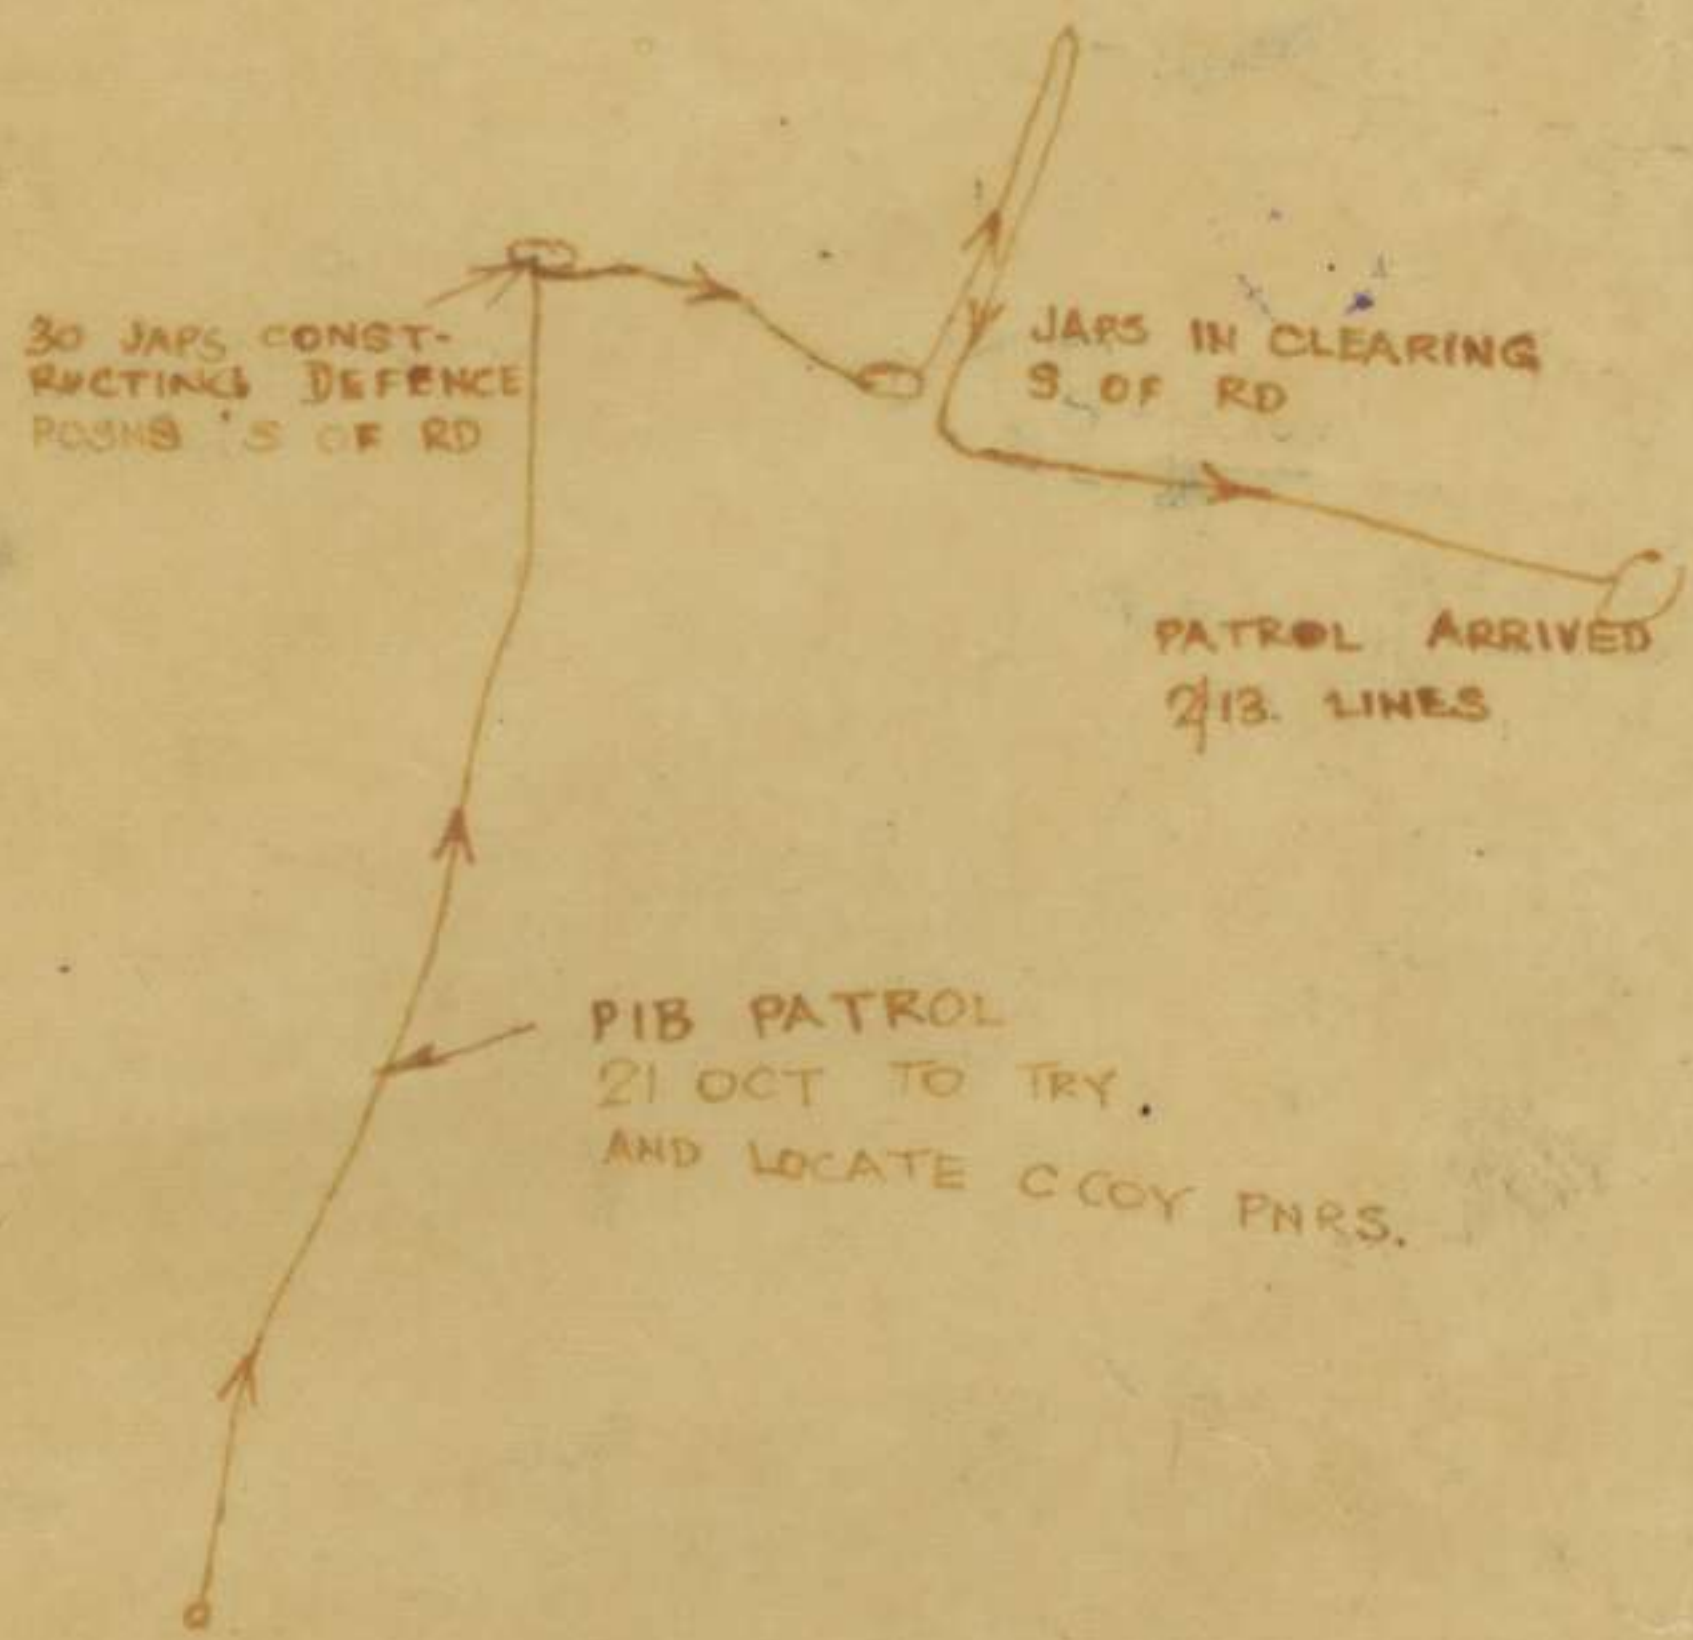 30 JAPS CONST-
RUCTING DEFENCE
POSNS S OF RD
JAPS IN CLEARING
S. OF RD
PATROL ARRIVED
2/13. LINES
PIB PATROL
21 OCT TO TRY.
AND LOCATE C COY PNRS.